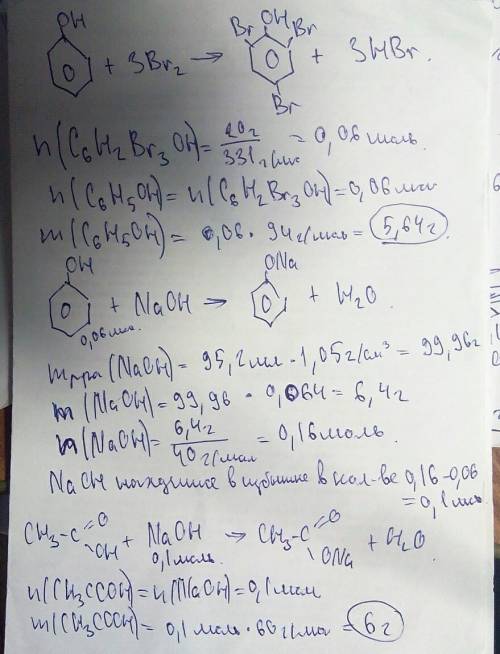 OH + 3Br₂ → OH Br Br Br + 3HBr.
n(C₆H₂Br₃OH) = 20г / 331г/моль = 0,06 моль.
n(C₆H₅OH) = n(C₆H₂Br₃OH) = 0,06 моль
m(C₆H₅OH) = 0,06 · 94г/моль = 5,64г.
OH + NaOH → ONa + H₂O.
0,06 моль.
m р-ра (NaOH) = 95,2мл · 1,05г/см³ = 99,96г
m(NaOH) = 99,96 · 0,064 = 6,4г
n(NaOH) = 6,4г / 40г/моль = 0,16 моль.
NaOH находится в избытке в кол-ве 0,16 - 0,06
= 0,1 моль
CH₃-C O OH + NaOH → CH₃-C O ONa + H₂O.
0,1 моль.
n(CH₃COOH) = n(NaOH) = 0,1 моль
m(CH₃COOH) = 0,1 моль · 60г/моль = 6г